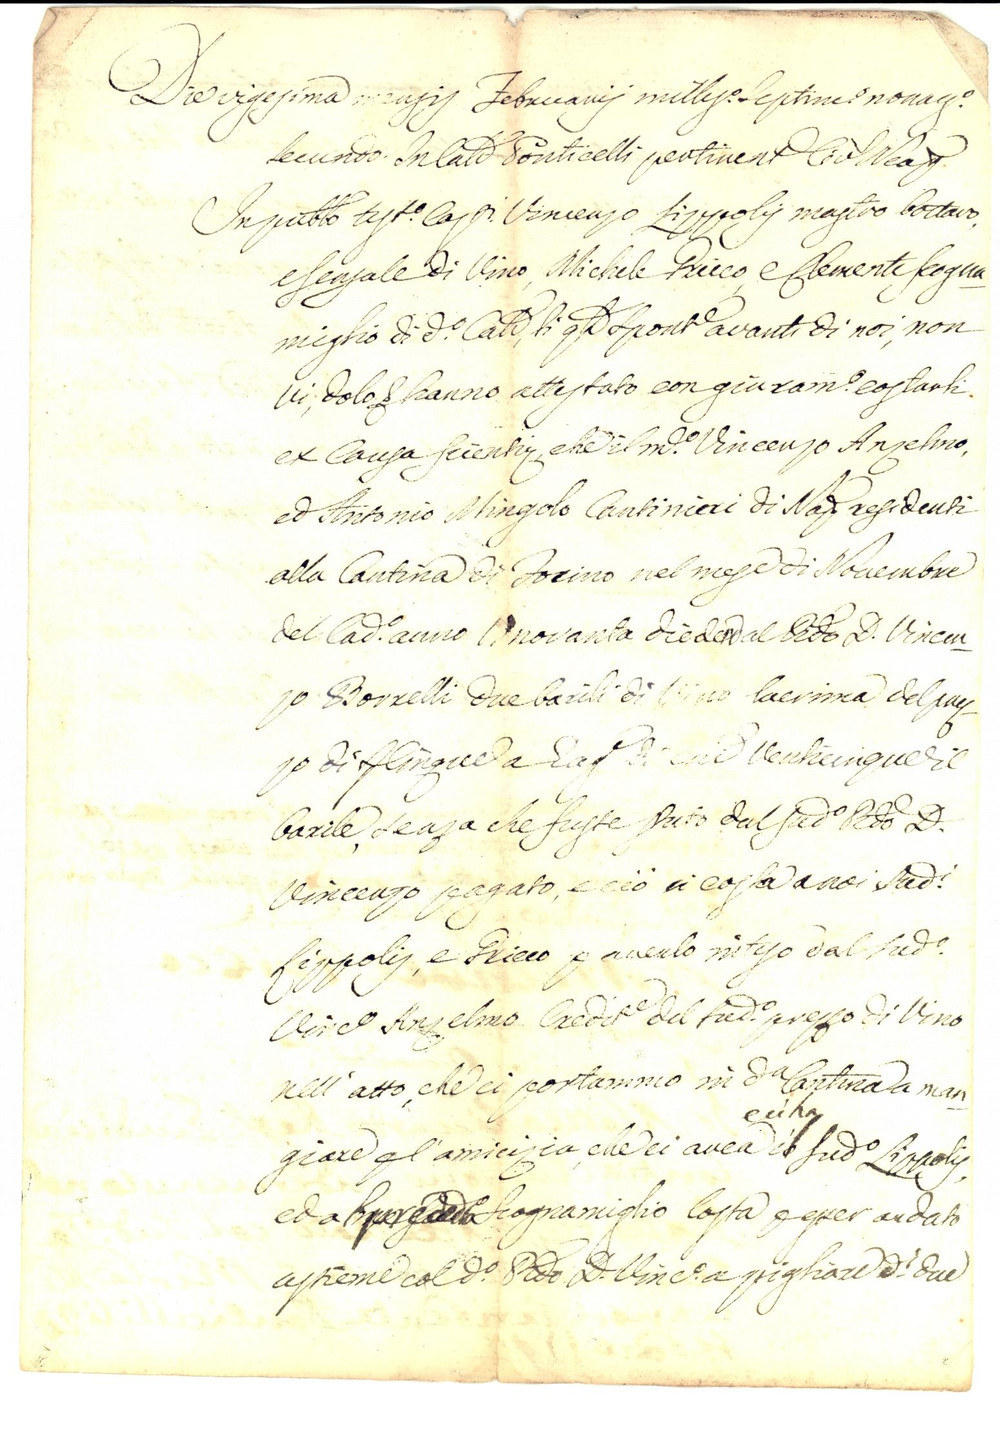 Die vigesima mensis Februarij mill.mo septinc.o nonag.o
secundo. In Cas.le Ponticelli pertinent. Civ. Neap.
In pub.o test.o Const.i Vincenzo Lippolis mastro bottaro,
e sensale di Vino, Michele Pricco, e Clemente Scogna=
miglio di d.o Cas.le, li q.li spont.e avanti di noi, non
vi, dolo &. hanno attestato con giuram.o costarli
ex causa scientiæ, che il m.co Vincenzo Anzelmo,
ed Antonio Mingolo Cantinieri di Nap. residenti
alla Cantina di Forino nel mese di Novembre
del cad.o anno novanta diedero al R.do D. Vincen=
zo Borrelli due barili di Vino lacrima del puz=
zo di a rag.e di ventic inque il
barile, senza che fusse stato dal sud.o R.do D.
Vincenzo pagato, e ciò ci costa a noi sud.i
Lippolis, e Pricco p averlo inteso dal sud.o
Vinc.o Anzelmo Credit.e del sud.o prezzo di Vino
nell' atto, che ci portammo in d.a Cantina a man=
giare p l' amicizia, che ci avea e ci ha il sud.o Lippolis,
ed a Scognamiglio costa p esser andato
assieme col d.o R.do D. Vinc.o a pigliare d.i due